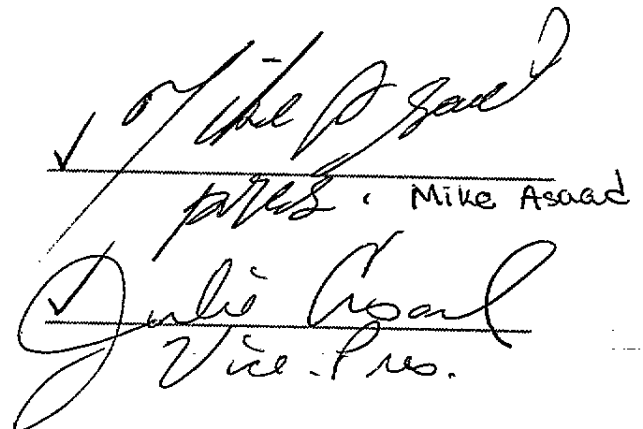 ✓ Mike Asaad
pres. Mike Asaad
✓ Julie Asaad
Vice.Pres.